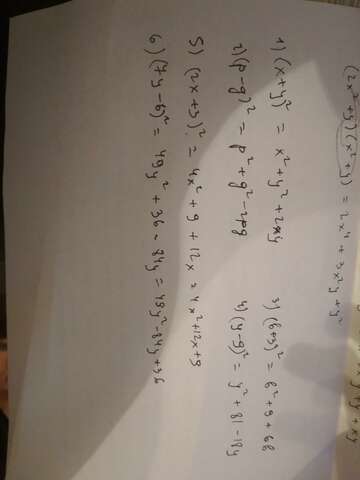 (2x² + y)(x² + y) = 2x⁴ + 3x²y + y²
1) (x+y)² = x² + y² + 2xy
3) (b+3)² = b² + 9 + 6b
2) (p-q)² = p² + q² - 2pq
4) (y-9)² = y² + 81 - 18y
5) (2x+3)² = 4x² + 9 + 12x = 4x² + 12x + 9
6) (7y-6)² = 49y² + 36 - 84y = 49y² - 84y + 36